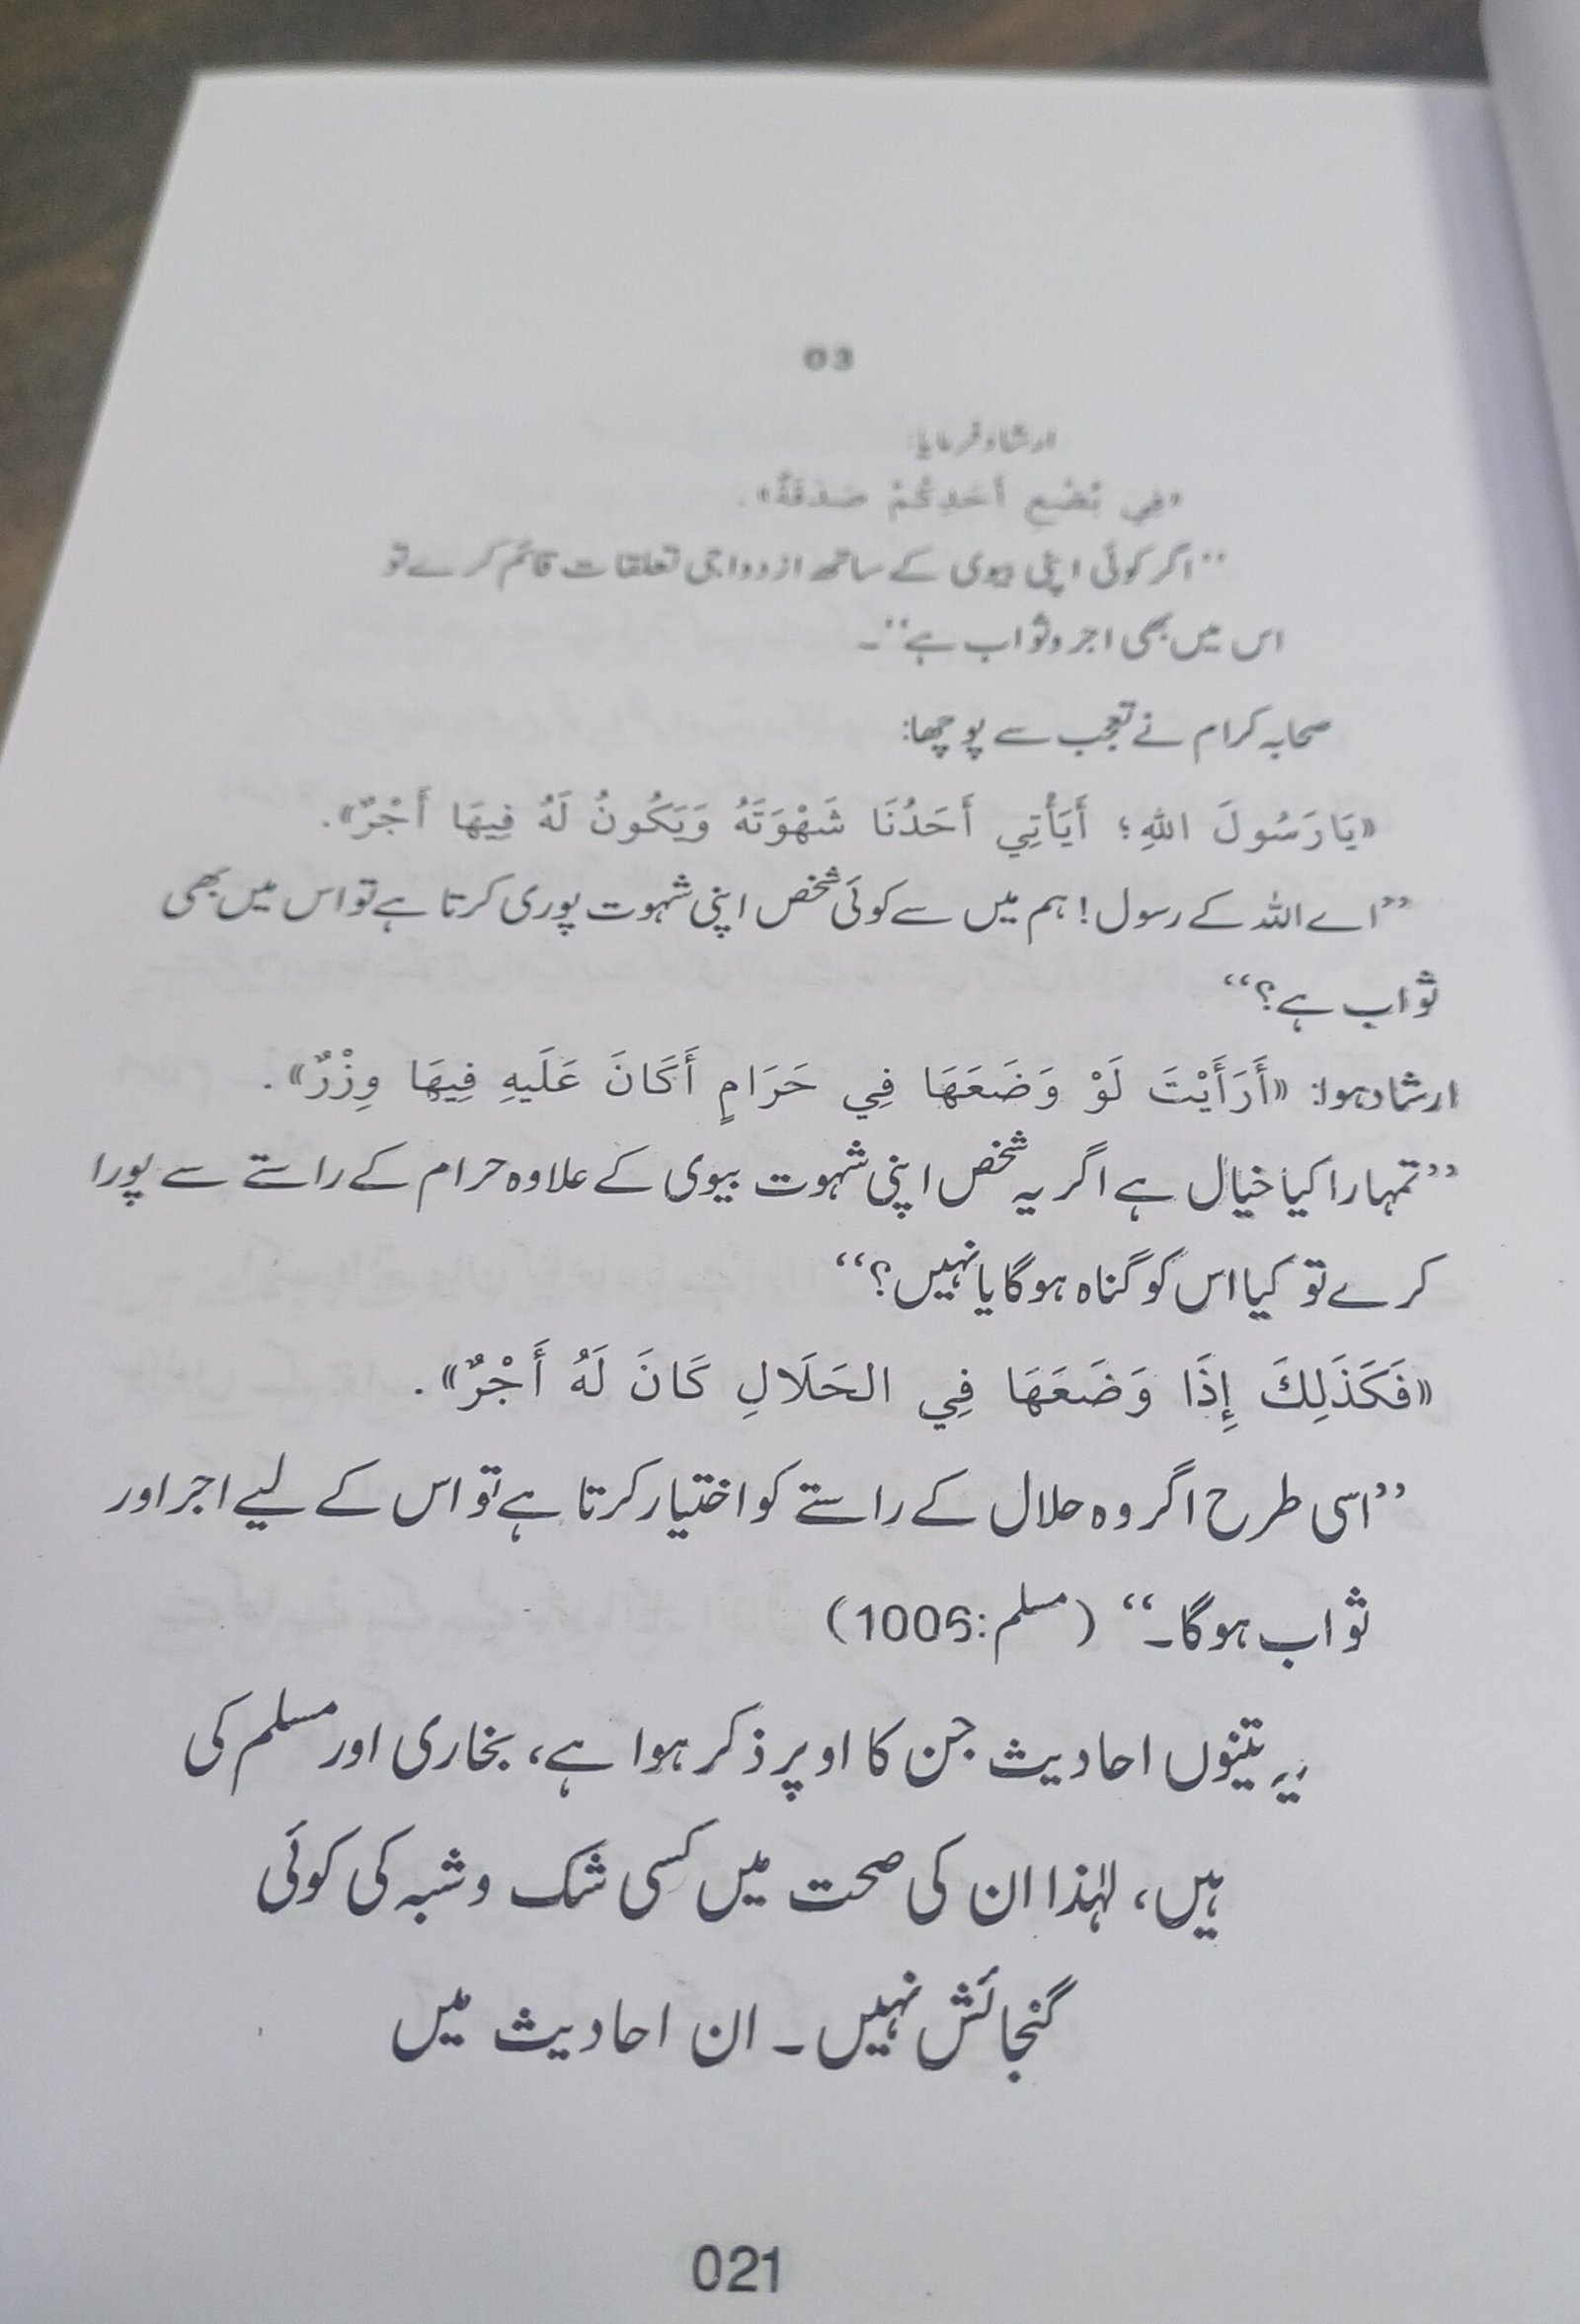 03
ارشاد فرمایا:
«فِي بُضْعِ أَحَدِكُمْ صَدَقَةٌ».
’’اگر کوئی اپنی بیوی کے ساتھ ازدواجی تعلقات قائم کرے تو
اس میں بھی اجر و ثواب ہے‘‘۔
صحابہ کرام نے تعجب سے پوچھا:
«يَارَسُولَ اللهِ؛ أَيَأْتِي أَحَدُنَا شَهْوَتَهُ وَيَكُونُ لَهُ فِيهَا أَجْرٌ».
’’اے اللہ کے رسول! ہم میں سے کوئی شخص اپنی شہوت پوری کرتا ہے تو اس میں بھی
ثواب ہے؟‘‘
ارشاد ہوا: «أَرَأَيْتَ لَوْ وَضَعَهَا فِي حَرَامٍ أَكَانَ عَلَيهِ فِيهَا وِزْرٌ».
’’تمہارا کیا خیال ہے اگر یہ شخص اپنی شہوت بیوی کے علاوہ حرام کے راستے سے پورا
کرے تو کیا اس کو گناہ ہوگا یا نہیں؟‘‘
«فَكَذَلِكَ إِذَا وَضَعَهَا فِي الحَلَالِ كَانَ لَهُ أَجْرٌ».
’’اسی طرح اگر وہ حلال کے راستے کو اختیار کرتا ہے تو اس کے لیے اجر اور
ثواب ہوگا۔‘‘ (مسلم:1006)
یہ تینوں احادیث جن کا اوپر ذکر ہوا ہے، بخاری اور مسلم کی
ہیں، لہٰذا ان کی صحت میں کسی شک و شبہ کی کوئی
گنجائش نہیں۔ ان احادیث میں
021